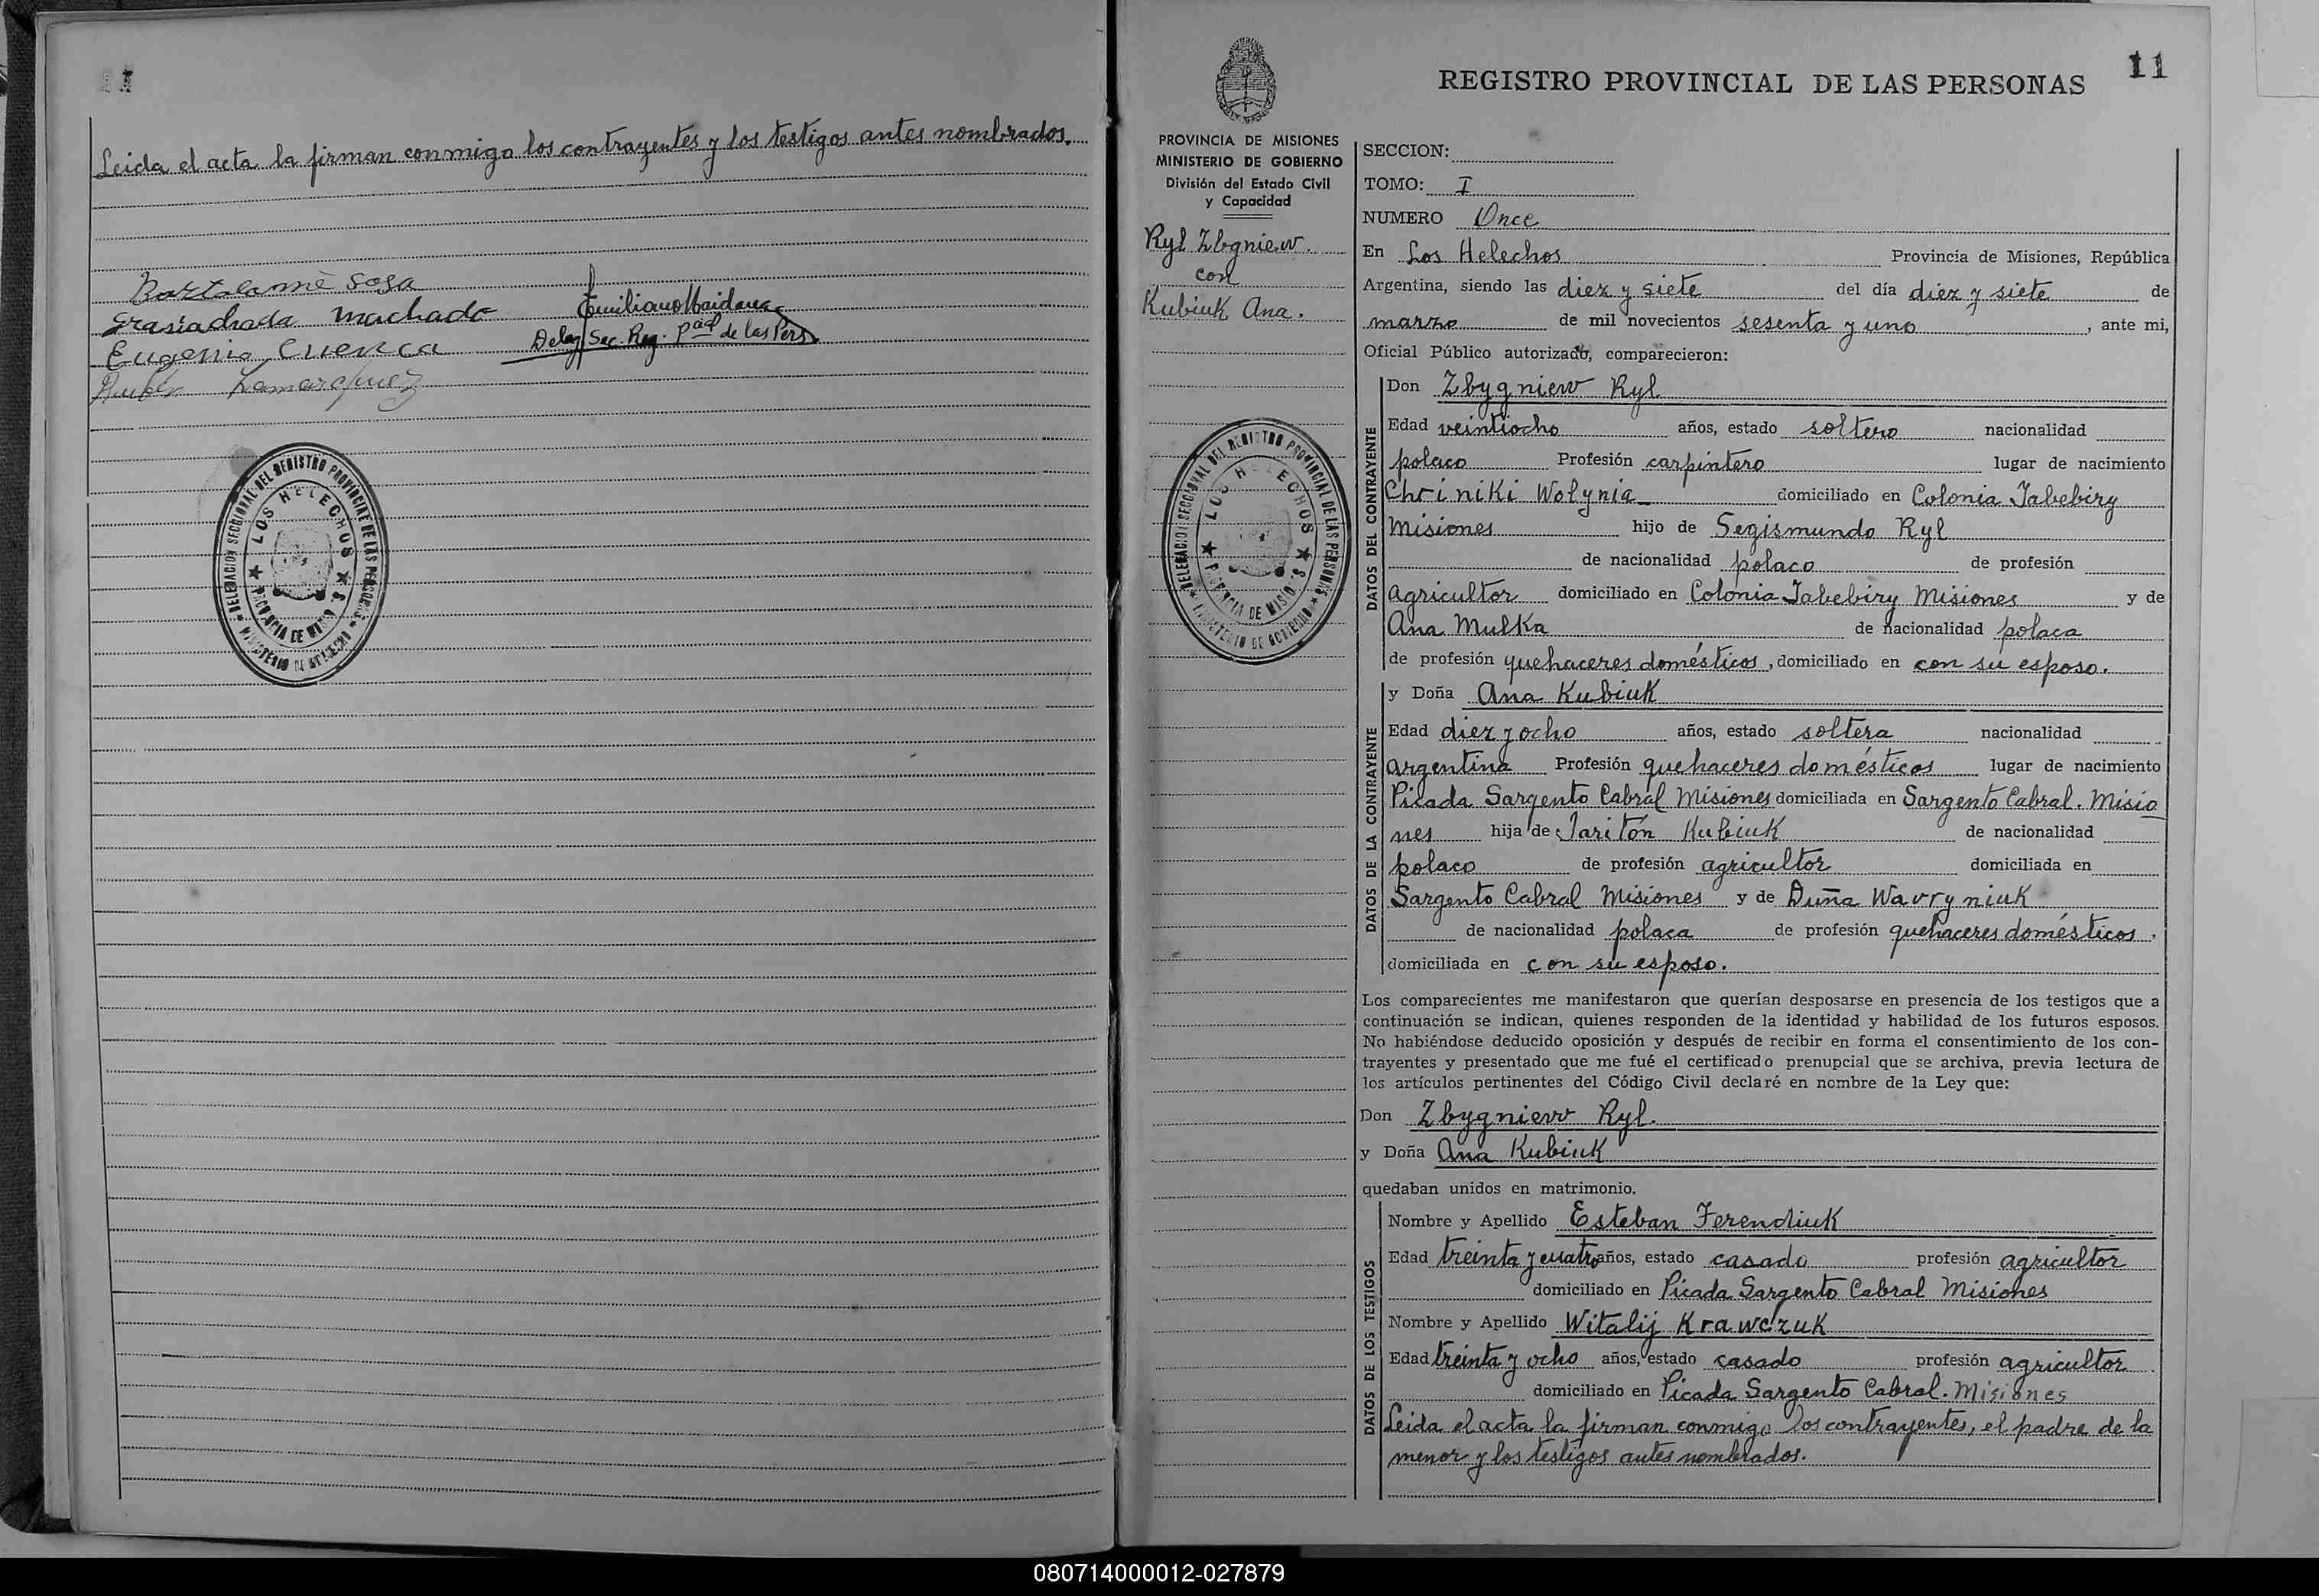 11
Leida el acta la firman conmigo los contrayentes y los testigos antes nombrados.
Bartolomé Sosa
Grasiadada Machado
Emiliano Maidana
Deleg Sec. Reg. Pcial de las Pers
Eugenio Cuenca
Rubén
DELEGACION SECCIONAL DEL REGISTRO PROVINCIAL DE LAS PERSONAS
LOS HELECHOS
PROVINCIA DE MISIONES
MINISTERIO DE GOBIERNO
11
REGISTRO PROVINCIAL DE LAS PERSONAS
PROVINCIA DE MISIONES
MINISTERIO DE GOBIERNO
División del Estado Civil
y Capacidad
Ryl Zbgniew
con
Kubiuk Ana.
DELEGACION SECCIONAL DEL REGISTRO PROVINCIAL DE LAS PERSONAS
LOS HELECHOS
PROVINCIA DE MISIONES
MINISTERIO DE GOBIERNO
SECCION:
TOMO: I
NUMERO Once
En Los Helechos Provincia de Misiones, República
Argentina, siendo las diez y siete del día diez y siete de
marzo de mil novecientos sesenta y uno, ante mi,
Oficial Público autorizado, comparecieron:
DATOS DEL CONTRAYENTE
Don Zbygniew Ryl
Edad veintiocho años, estado soltero nacionalidad
polaco Profesión carpintero lugar de nacimiento
Chriniki Wolynia domiciliado en Colonia Yabebiry
Misiones hijo de Segismundo Ryl
de nacionalidad polaco de profesión
agricultor domiciliado en Colonia Yabebiry Misiones y de
Ana Mulka de nacionalidad polaca
de profesión quehaceres domésticos, domiciliado en con su esposo.
DATOS DE LA CONTRAYENTE
y Doña Ana Kubiuk
Edad diez y ocho años, estado soltera nacionalidad
argentina Profesión quehaceres domésticos lugar de nacimiento
Picada Sargento Cabral Misiones domiciliada en Sargento Cabral. Misio
nes hija de Jaritón Kubiuk de nacionalidad
polaco de profesión agricultor domiciliada en
Sargento Cabral Misiones y de Duña Wavryniuk
de nacionalidad polaca de profesión quehaceres domésticos.
domiciliada en con su esposo.
Los comparecientes me manifestaron que querían desposarse en presencia de los testigos que a
continuación se indican, quienes responden de la identidad y habilidad de los futuros esposos.
No habiéndose deducido oposición y después de recibir en forma el consentimiento de los con-
trayentes y presentado que me fué el certificado prenupcial que se archiva, previa lectura de
los artículos pertinentes del Código Civil declaré en nombre de la Ley que:
Don Zbygniew Ryl.
y Doña Ana Kubiuk
quedaban unidos en matrimonio.
DATOS DE LOS TESTIGOS
Nombre y Apellido Esteban Ferendiuk
Edad treinta y cuatro años, estado casado profesión agricultor
domiciliado en Picada Sargento Cabral Misiones
Nombre y Apellido Witalij Krawczuk
Edad treinta y ocho años, estado casado profesión agricultor
domiciliado en Picada Sargento Cabral. Misiones
Leida el acta la firman conmigo los contrayentes, el padre de la
menor y los testigos antes nombrados.
080714000012-027879